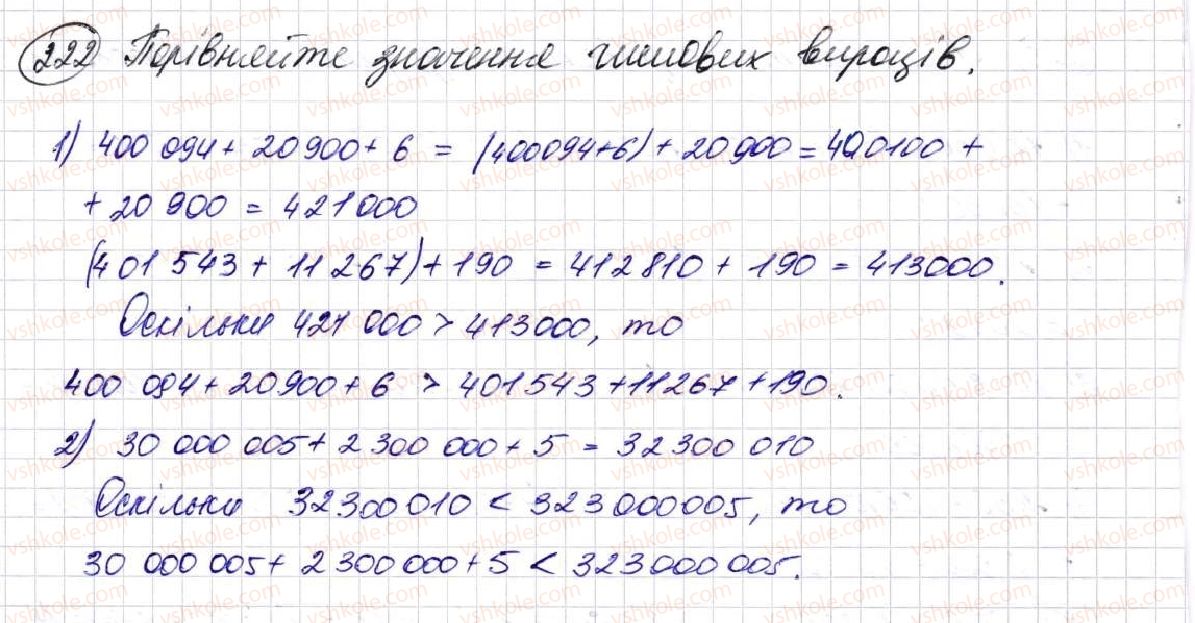 222 Порівняйте значення числових виразів.
1) 400 094 + 20 900 + 6 = (400094+6) + 20 900 = 400100 +
+ 20 900 = 421 000
(401 543 + 11 267) + 190 = 412 810 + 190 = 413000.
Оскільки 421 000 > 413000, то
400 094 + 20900 + 6 > 401543 + 11267 + 190.
2) 30 000 005 + 2 300 000 + 5 = 32 300 010
Оскільки 32300010 < 323000005, то
30 000 005 + 2 300 000 + 5 < 323000 005.